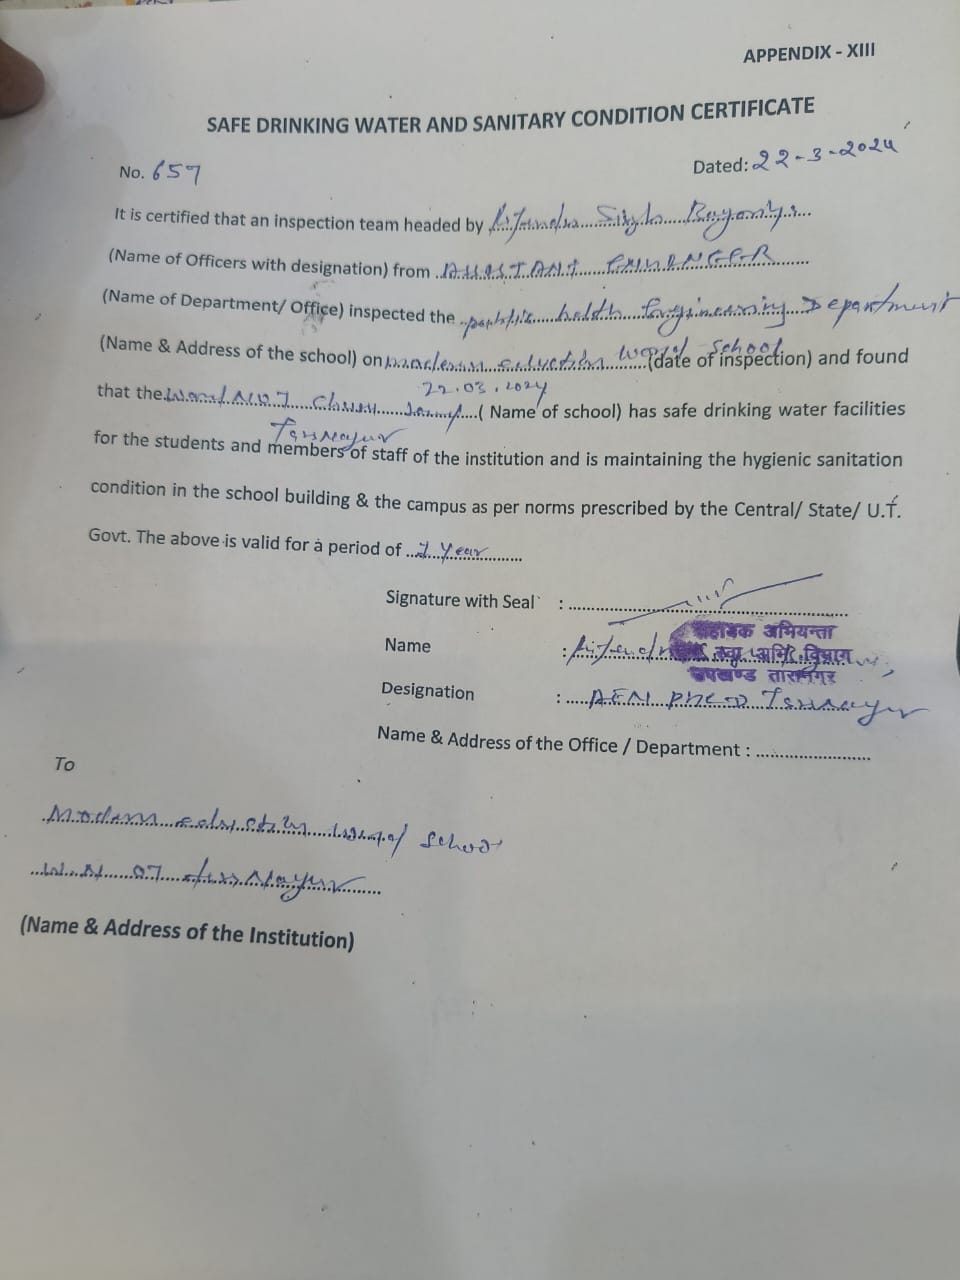 APPENDIX - XIII
SAFE DRINKING WATER AND SANITARY CONDITION CERTIFICATE
No. 657
Dated: 22-3-2024
It is certified that an inspection team headed by Singh
(Name of Officers with designation) from
(Name of Department/ Office) inspected the helth Engineering Department
(Name & Address of the school) on World School (date of inspection) and found
22.03.2024
that the ( Name of school) has safe drinking water facilities
for the students and members of staff of the institution and is maintaining the hygienic sanitation
condition in the school building & the campus as per norms prescribed by the Central/ State/ U.T.
Govt. The above is valid for a period of 1 Year
Signature with Seal :
Name :
सहायक अभियन्ता
अभि. विभाग
उपखण्ड तारानगर
Designation : AEN PHED
Name & Address of the Office / Department :
To
Modern School
W.N 07
(Name & Address of the Institution)